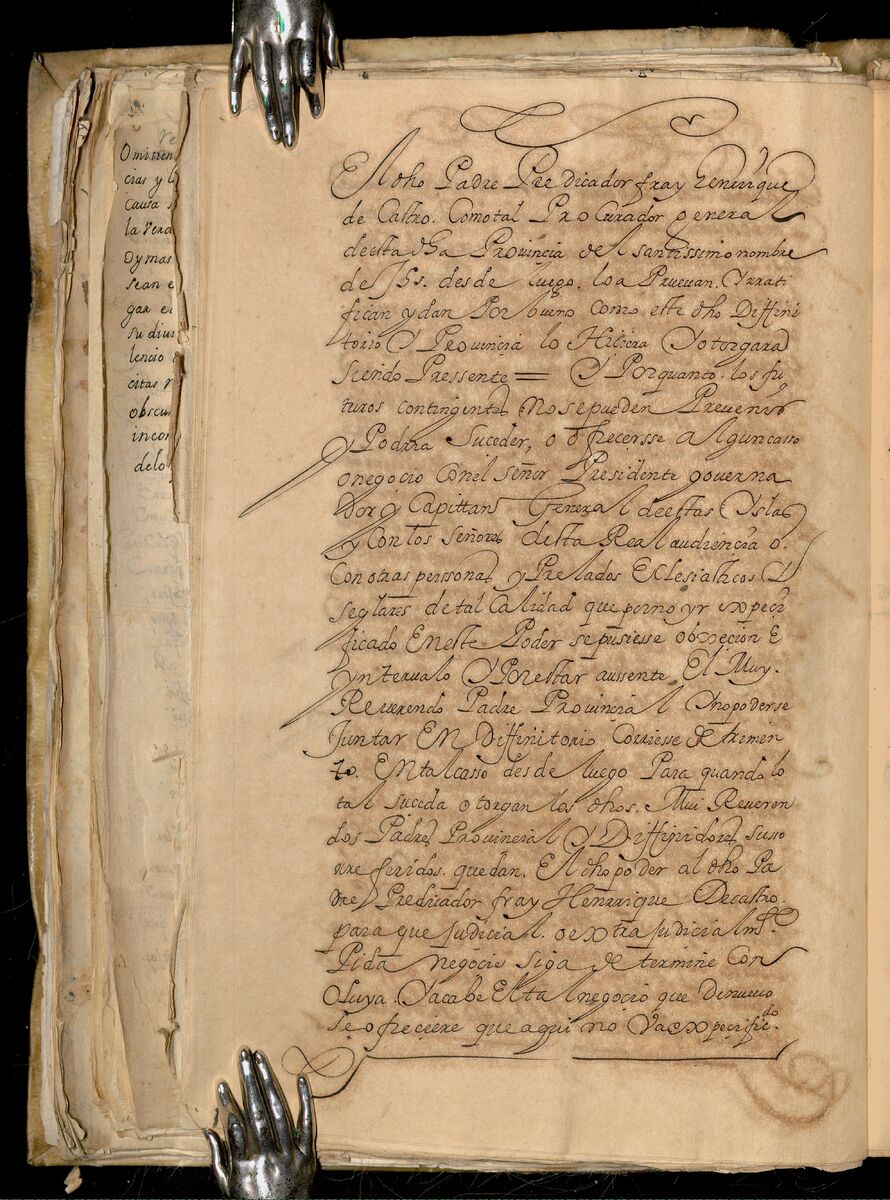 Omitien
cias y l
causa s
la Verd
Dymas
sean e
gar el
su divi
lencio
citas
obscu
incon
delo
El dho Padre Predicador fray Henrrique
de Castro. Como tal Procurador General
de esta dha Provincia del santissimo nombre
de Jhs. desde luego. lo a Pruevan. Yrrati
fican y dan Por bueno como este dho Diffini
torio Y Provincia lo Hiciera Y otorgara
Siendo Pressente = Y Porquanto. los fu
turos contingentes no se pueden Prevenir
y Podria Suceder, o ofrecersse algun casso
o negocio Con el Señor Presidente governa
dor y Capittan General de estas Yslas
y Con los Señores desta Real audiencia o.
Con otras perssonas y Prelados Eclesiasticos Y
seglares de tal Calidad que por no yr expeci
ficado En este Poder se pusiesse obxecion E
yntervalo Y Por estar aussente El Muy.
Reverendo Padre Provincial Y no poderse
Juntar En Diffinitorio Corriesse detrimen
to. En tal casso desde luego Para quando lo
tal suceda otorgan los dhos. Mui Reveren
dos Padres Provincial Y Diffinidores suso
rreferidos. que dan. El dho poder al dho Pa
dre Predicador fray Henrrique De castro.
para que judicial. o extrajudicialmte.
Pida negocie siga determine Con
cluya. Y acabe El tal negocio que De nuevo
se ofreciere que aqui no Va expecificdo.